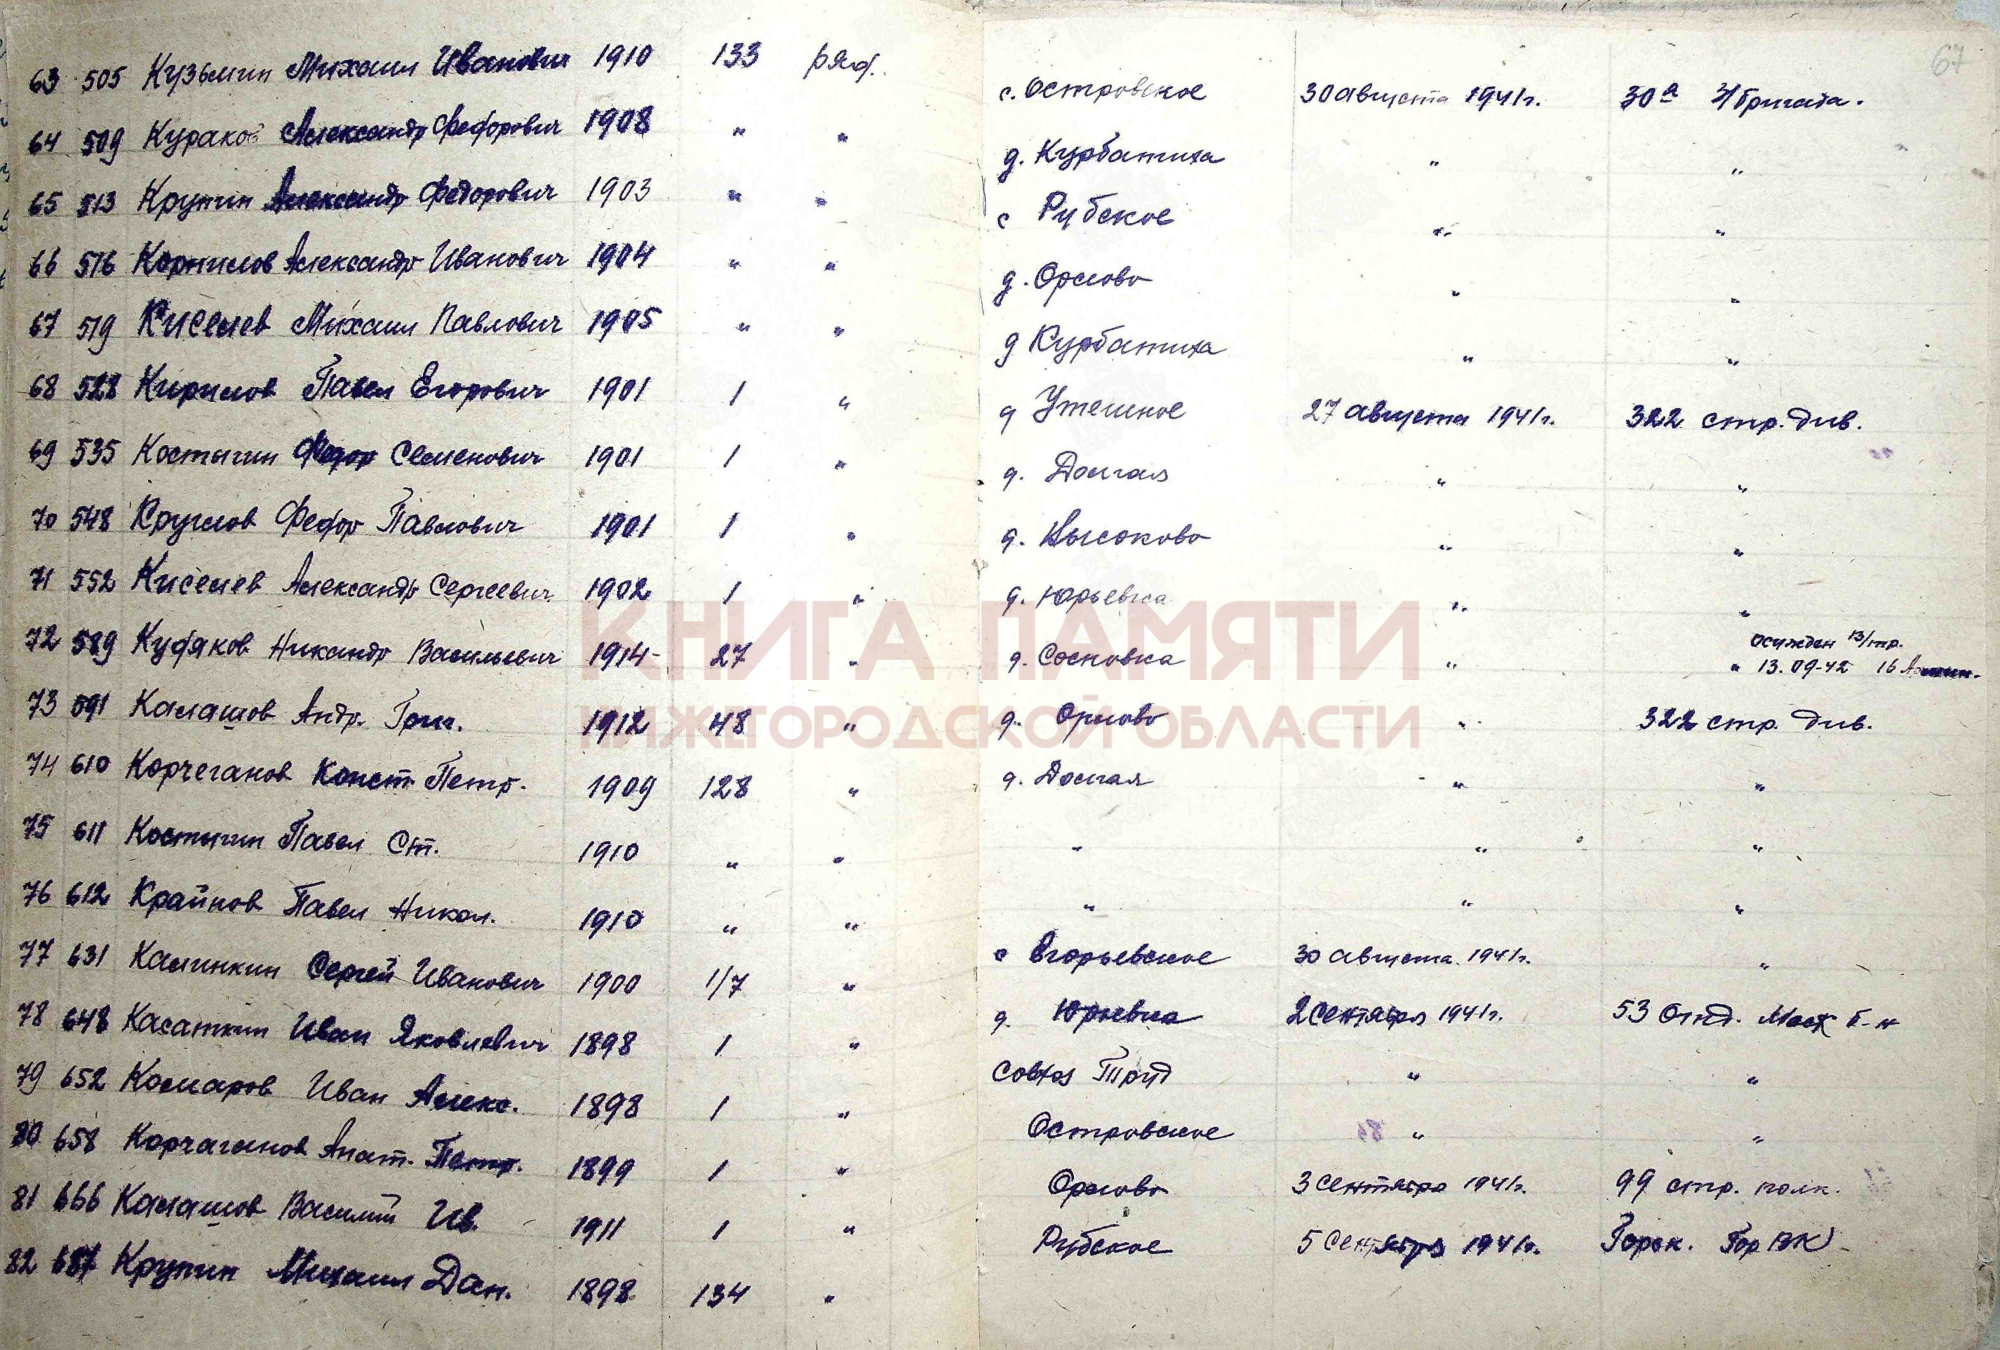 67
63 505 Кузьмин Михаил Иванович 1910 133 ряд. с. Островское 30 августа 1941г. 30а З/бригада.
64 509 Кураков Александр Федорович 1908 " " д. Курбатиха " "
65 513 Крупин Александр Федорович 1903 " " с Рубское " "
66 516 Корнилов Александр Иванович 1904 " " д. Орлово " "
67 519 Киселев Михаил Павлович 1905 " " д Курбатиха " "
68 528 Кирилов Павел Егорович 1901 1 " д Утешное 27 августа 1941г. 322 стр. див.
69 535 Костыгин Федор Семенович 1901 1 " д. Долгая " "
70 548 Круглов Федор Павлович 1901 1 " д. Высоково " "
71 552 Киселев Александр Сергеевич 1902 1 " д. Юрьевка " "
осужден 13/тр.
72 589 Кудяков Никандр Васильевич 1914 27 " д. Сосновка " " 13.09-42 16
73 591 Калашов Андр. Григ. 1912 48 " д. Орлово " 322 стр. див.
74 610 Корчеганов Конст. Петр. 1909 128 " д. Долгая " "
75 611 Костыгин Павел Ст. 1910 " " " " "
76 612 Крайнов Павел Никол. 1910 " " " " "
77 631 Калинкин Сергей Иванович 1900 1/7 " с Егорьевское 30 августа 1941г. "
78 648 Касаткин Иван Яковлевич 1898 1 " д. Юрьевка 2 сентября 1941г. 53 отд. Мост б-н
79 652 Комаров Иван Алекс. 1898 1 " Совхоз Труд " "
80 658 Корчаганов Анат. Петр. 1899 1 " Островское " "
81 666 Калашов Василий Ив. 1911 1 " Орлово 3 сентября 1941г. 99 стр. полк.
82 687 Крупин Михаил Дан. 1898 134 " Рубское 5 сентября 1941г. Горьк. Гор ВК
КНИГА ПАМЯТИ
НИЖЕГОРОДСКОЙ ОБЛАСТИ